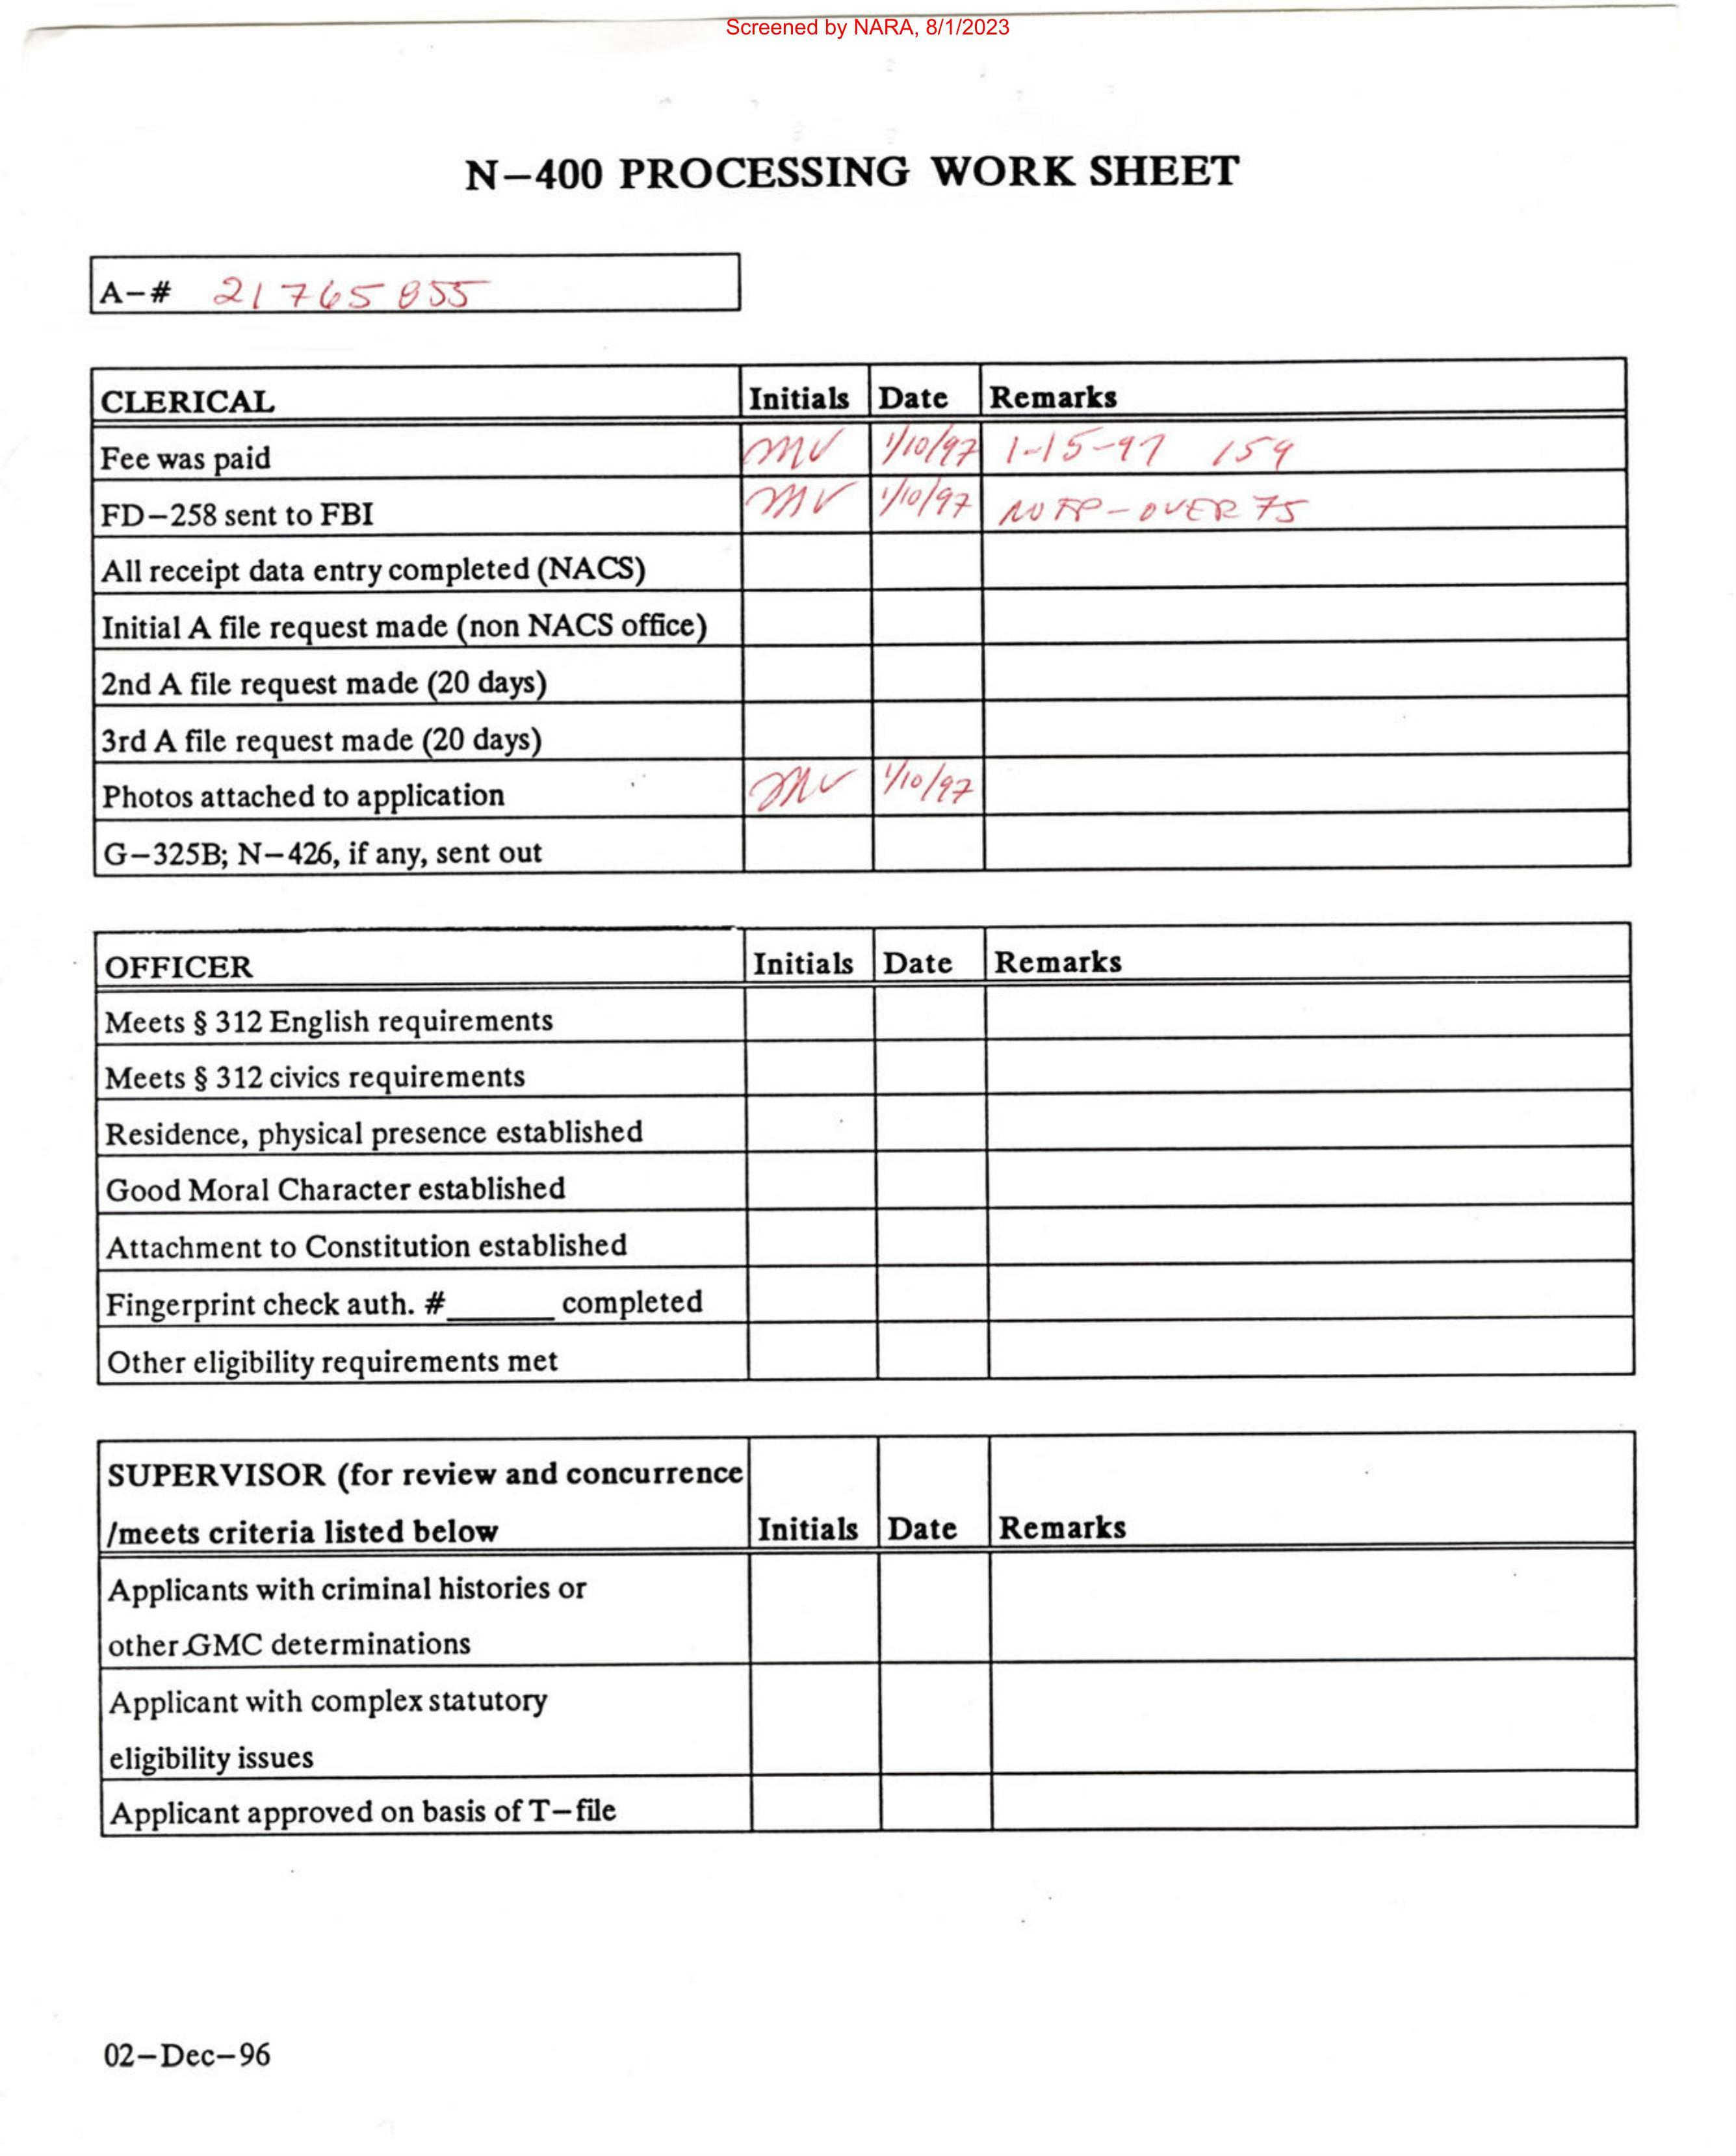 Screened by NARA, 8/1/2023
N-400 PROCESSING WORK SHEET
A-# 21765855
CLERICAL Initials Date Remarks
Fee was paid MV 1/10/97 1-15-97 159
FD-258 sent to FBI MV 1/10/97 NO FP - OVER 75
All receipt data entry completed (NACS)
Initial A file request made (non NACS office)
2nd A file request made (20 days)
3rd A file request made (20 days)
Photos attached to application MV 1/10/97
G-325B; N-426, if any, sent out
OFFICER Initials Date Remarks
Meets § 312 English requirements
Meets § 312 civics requirements
Residence, physical presence established
Good Moral Character established
Attachment to Constitution established
Fingerprint check auth. #______ completed
Other eligibility requirements met
SUPERVISOR (for review and concurrence
/meets criteria listed below Initials Date Remarks
Applicants with criminal histories or
other GMC determinations
Applicant with complex statutory
eligibility issues
Applicant approved on basis of T-file
02-Dec-96